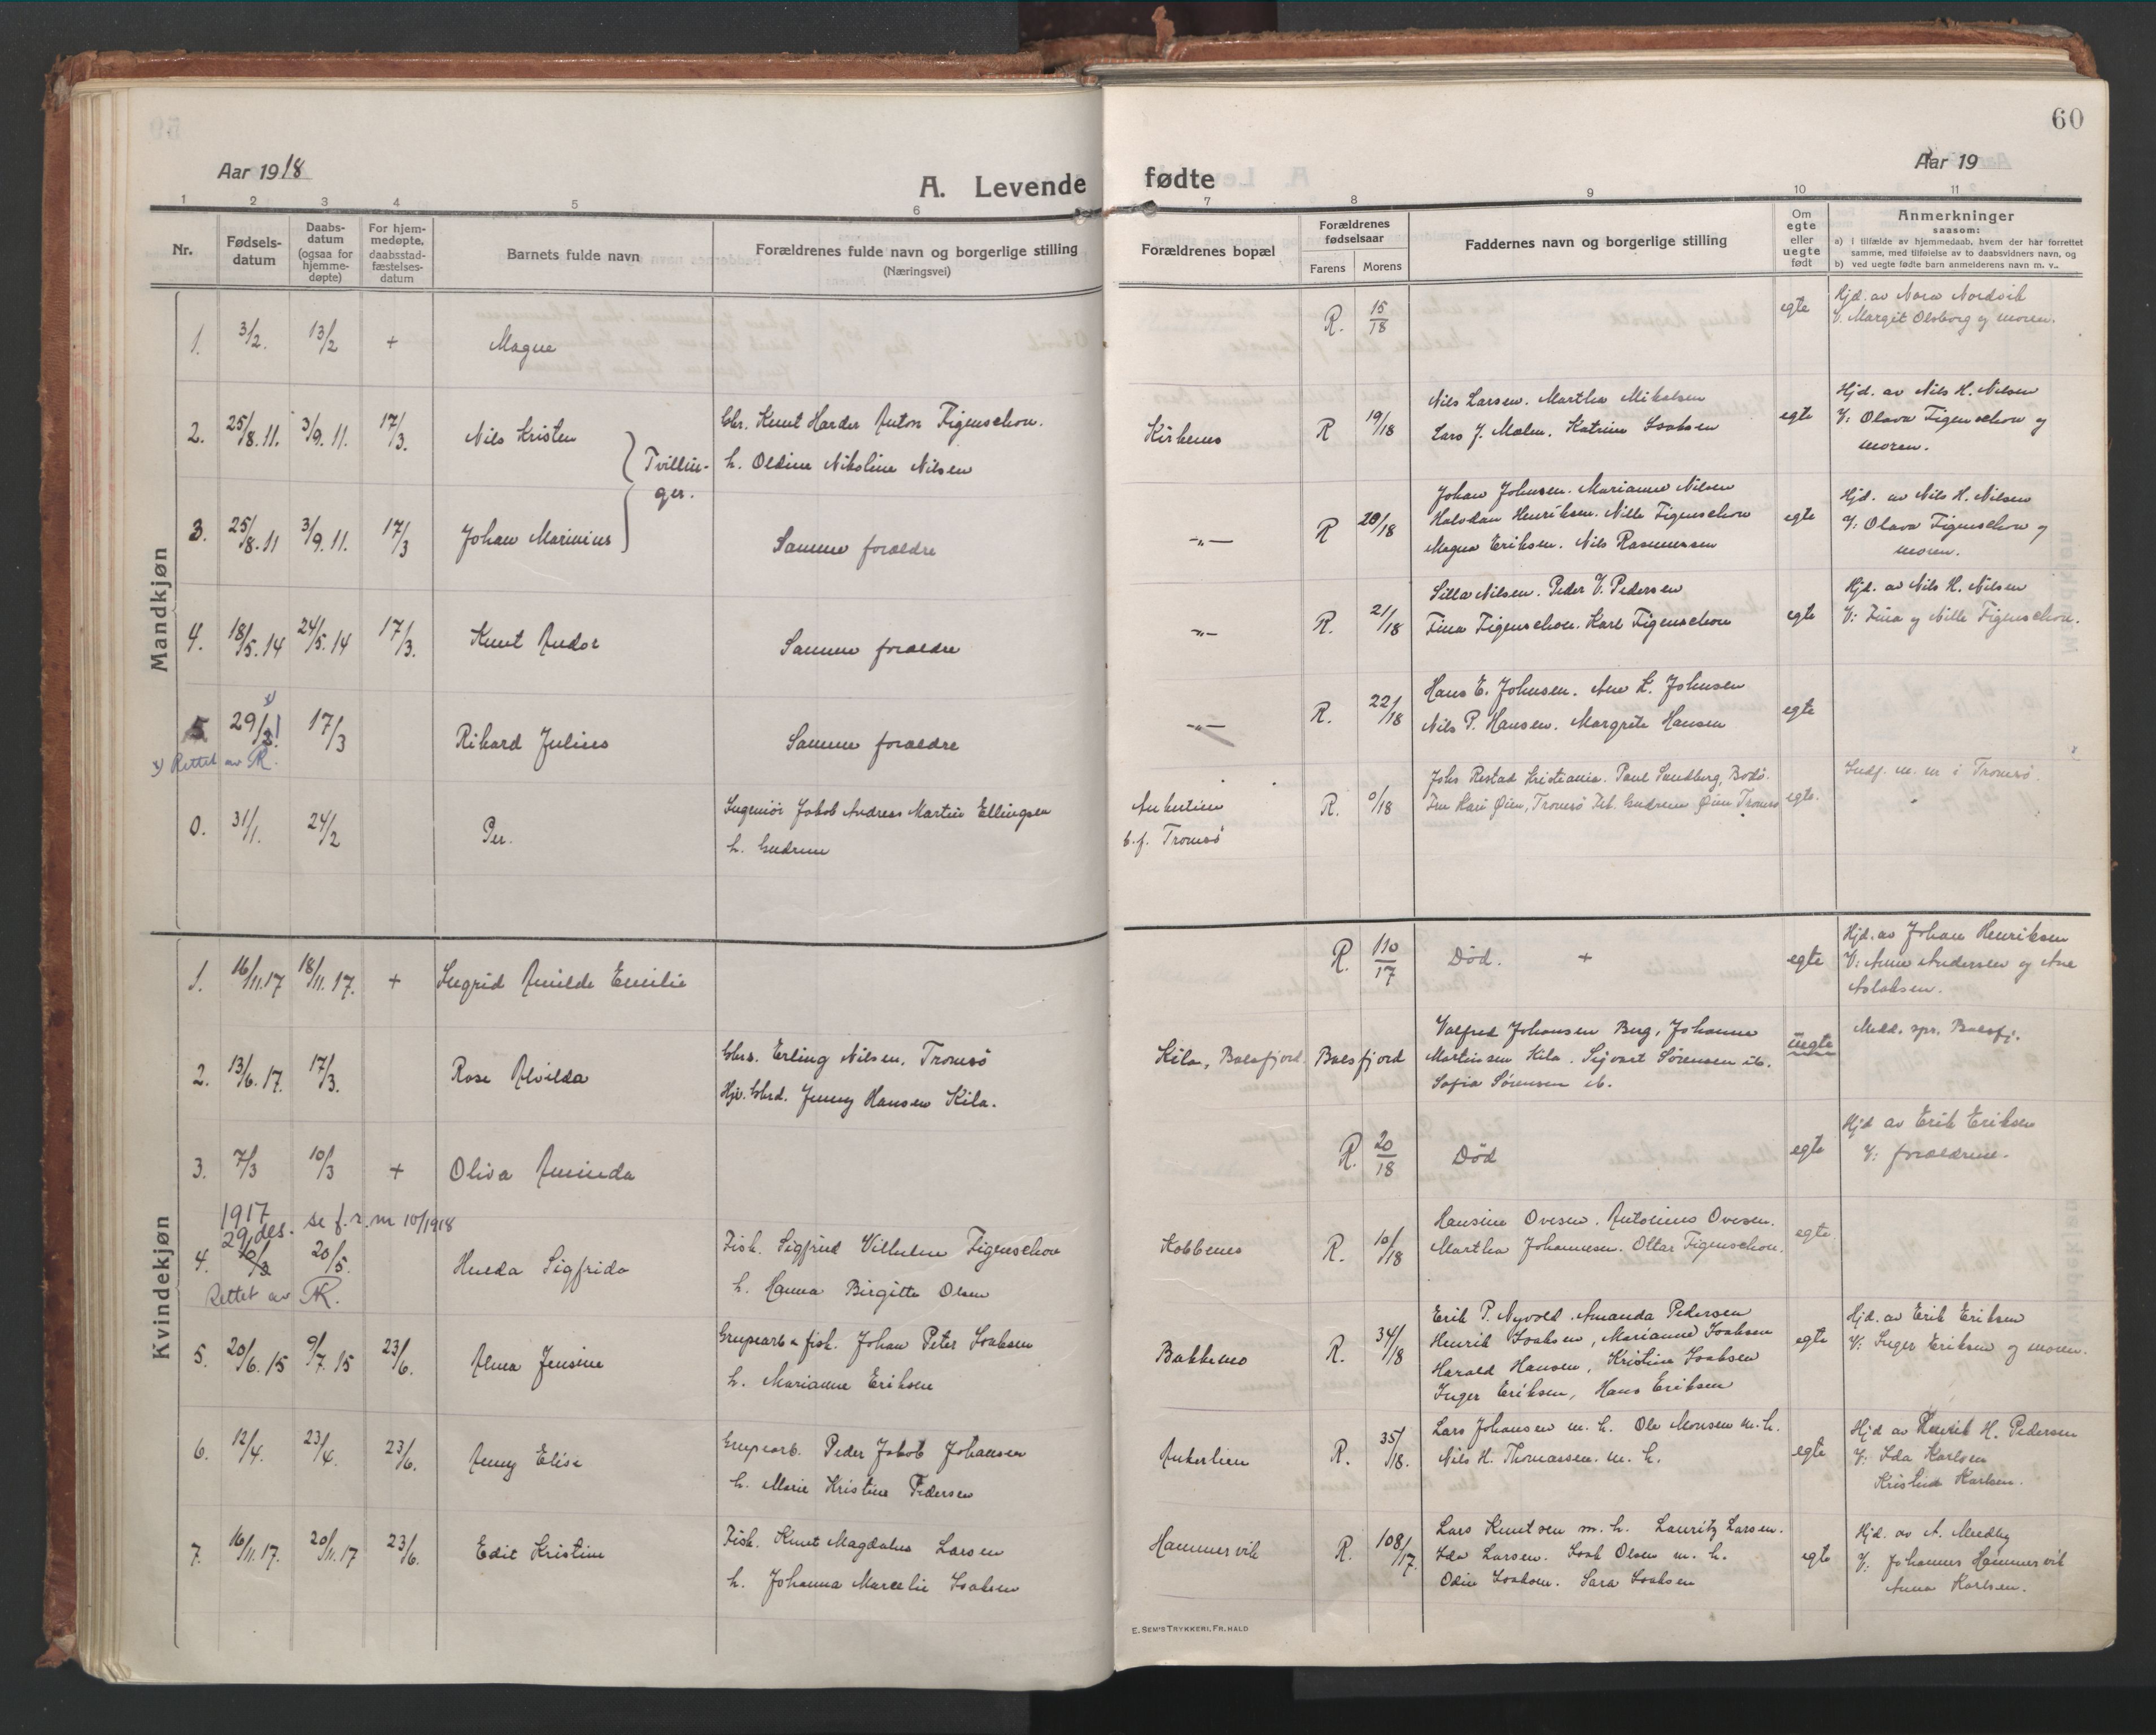 60
Aar 1918
A. Levende
fødte
Aar 19
1 2 3 4 5 6 7 8 9 10 11
Nr.
Fødsels-
datum
Daabs-
datum
(ogsaa for
hjemme-
døpte)
For hjem-
medøpte,
daabsstad-
fæstelses-
datum
Barnets fulde navn
Forældrenes fulde navn og borgerlige stilling
(Næringsvei)
Forældrenes bopæl
Forældrenes
fødselsaar
Farens Morens
Faddernes navn og borgerlige stilling
Om
egte
eller
uegte
født
Anmerkninger
saasom:
a) i tilfælde av hjemmedaab, hvem der har forrettet
samme, med tilføielse av to daabsvidners navn, og
b) ved uegte fødte barn anmelderens navn m. v.
Mandkjøn
1. 3/2. 13/2 + Magne R. 15/18 egte
Hjd. av Nora Nordvik
V. Margit Olsborg og moren.
2. 25/8.11. 3/9.11. 17/3. Nils Kristen
Tvillin-
ger.
Knut Harder Anton Figenschou.
h. Oldine Nikoline Nilsen
Kirkenes R 19/18
Nils Larsen. Martha Mikalsen
Lars J. Malm. Katrine Isaksen
egte
Hjd. av Nils H. Nilsen
V: Olava Figenschou og
moren.
3. 25/8.11 3/9.11. 17/3 Johan Marinius
Samme forældre
-"- R 20/18
Johan Johnsen. Marianne Nilsen
Halvdan Henriksen. Nille Figenschou
Magna Eriksen. Nils Rasmussen
egte
Hjd. av Nils H. Nilsen
V: Olava Figenschou og
moren.
4. 18/5.14 24/5.14 17/3. Knut Andor
Samme forældre
-"- R. 21/18
Silla Nilsen. Peder V. Pedersen
Fina Figenschou. Karl Figenschou
egte
Hjd. av Nils H. Nilsen
V: Fina og Nille Figenschou.
5 29/1 x) 17/3 Rikard Julius
x) Rettet av
Samme forældre
-"- R. 22/18
Hans E. Johnsen. Ane K. Johnsen
Nils P. Hansen. Margrete Hansen
egte
0. 31/1. 24/2 Per.
Ingeniør Jakob Andreas Martin Ellingsen
h. Gudrun
b.f. Tromsø
R. 0/18
Johs Restad Kristiania. Paul Sandberg, Bodø.
Fru Kari Øien, Tromsø Gudrun Øien Tromsø
egte.
Indf. m. m i Tromsø.
Kvindekjøn
1. 16/11.17 18/11.17. + Ingrid Amilde Emilie
R. 110/17 Død. + egte
Hjd. av Johan Henriksen
V: Anne Andersen og Ane
Aslaksen.
2. 13/6.17. 17/3. Rose Alvilda
Erling Nilsen, Tromsø
Jenny Hansen Kila.
Kila, Balsfjord. Balsfjord
Valfred Johansen Berg, Johanne
Martinsen Kila. Sigvart Sørensen ib.
Sofia Sørensen ib.
uegte
Medd. spr. Balsfj.
3. 7/3 10/3 + Oliva Aminda
R. 20/18 Død egte
Hjd av Erik Eriksen
V: forældrene.
1917
29 des. se f. r. nr 10/1918
4. 20/5. Hulda Sigfrida
Rettet av
Fisk. Sigfrid Vilhelm Figenschou
h. Hanna Birgitte Olsen
Kobbenes R. 10/18
Hansine Ovesen. Antonius Ovesen.
Martha Johannesen. Ottar Figenschou.
egte
5. 20/6.15 9/7.15 23/6. Alma Jensine
Grupearb & fisk. Johan Peter Isaksen
h. Marianne Eriksen
Bakkenes R. 34/18
Erik P. Nyvold. Amanda Pedersen
Henrik Isaksen, Marianne Isaksen
Harald Hansen, Kristine Isaksen
Inger Eriksen, Hans Eriksen
egte
Hjd. av Erik Eriksen
V: Inger Eriksen og moren.
6. 12/4. 23/4. 23/6. Anny Elise
Grupearb. Peder Jakob Johansen
h. Marie Kristine Pedersen
Ankerlien R. 35/18.
Lars Johansen m. h. Ole Monsen m. h.
Nils H. Thomassen. m. h.
egte
Hjd av Henrik H. Pedersen
V: Ida Karlsen
Kristine Karlsen.
7. 16/11.17. 20/11.17 23/6. Edit Kristine
Fisk. Knut Magdalus Larsen
h. Johanna Marcelie Isaksen
Hammervik R. 108/17.
Lars Knutsen m. h. Lauritz Larsen.
Ida Larsen. Isak Olsen m. h.
Odin Isaksen. Sara Isaksen
egte
Hjd. av A. Medby
V: Johannes Hammervik
Anna Karlsen.
E. SEM'S TRYKKERI, FR. HALD